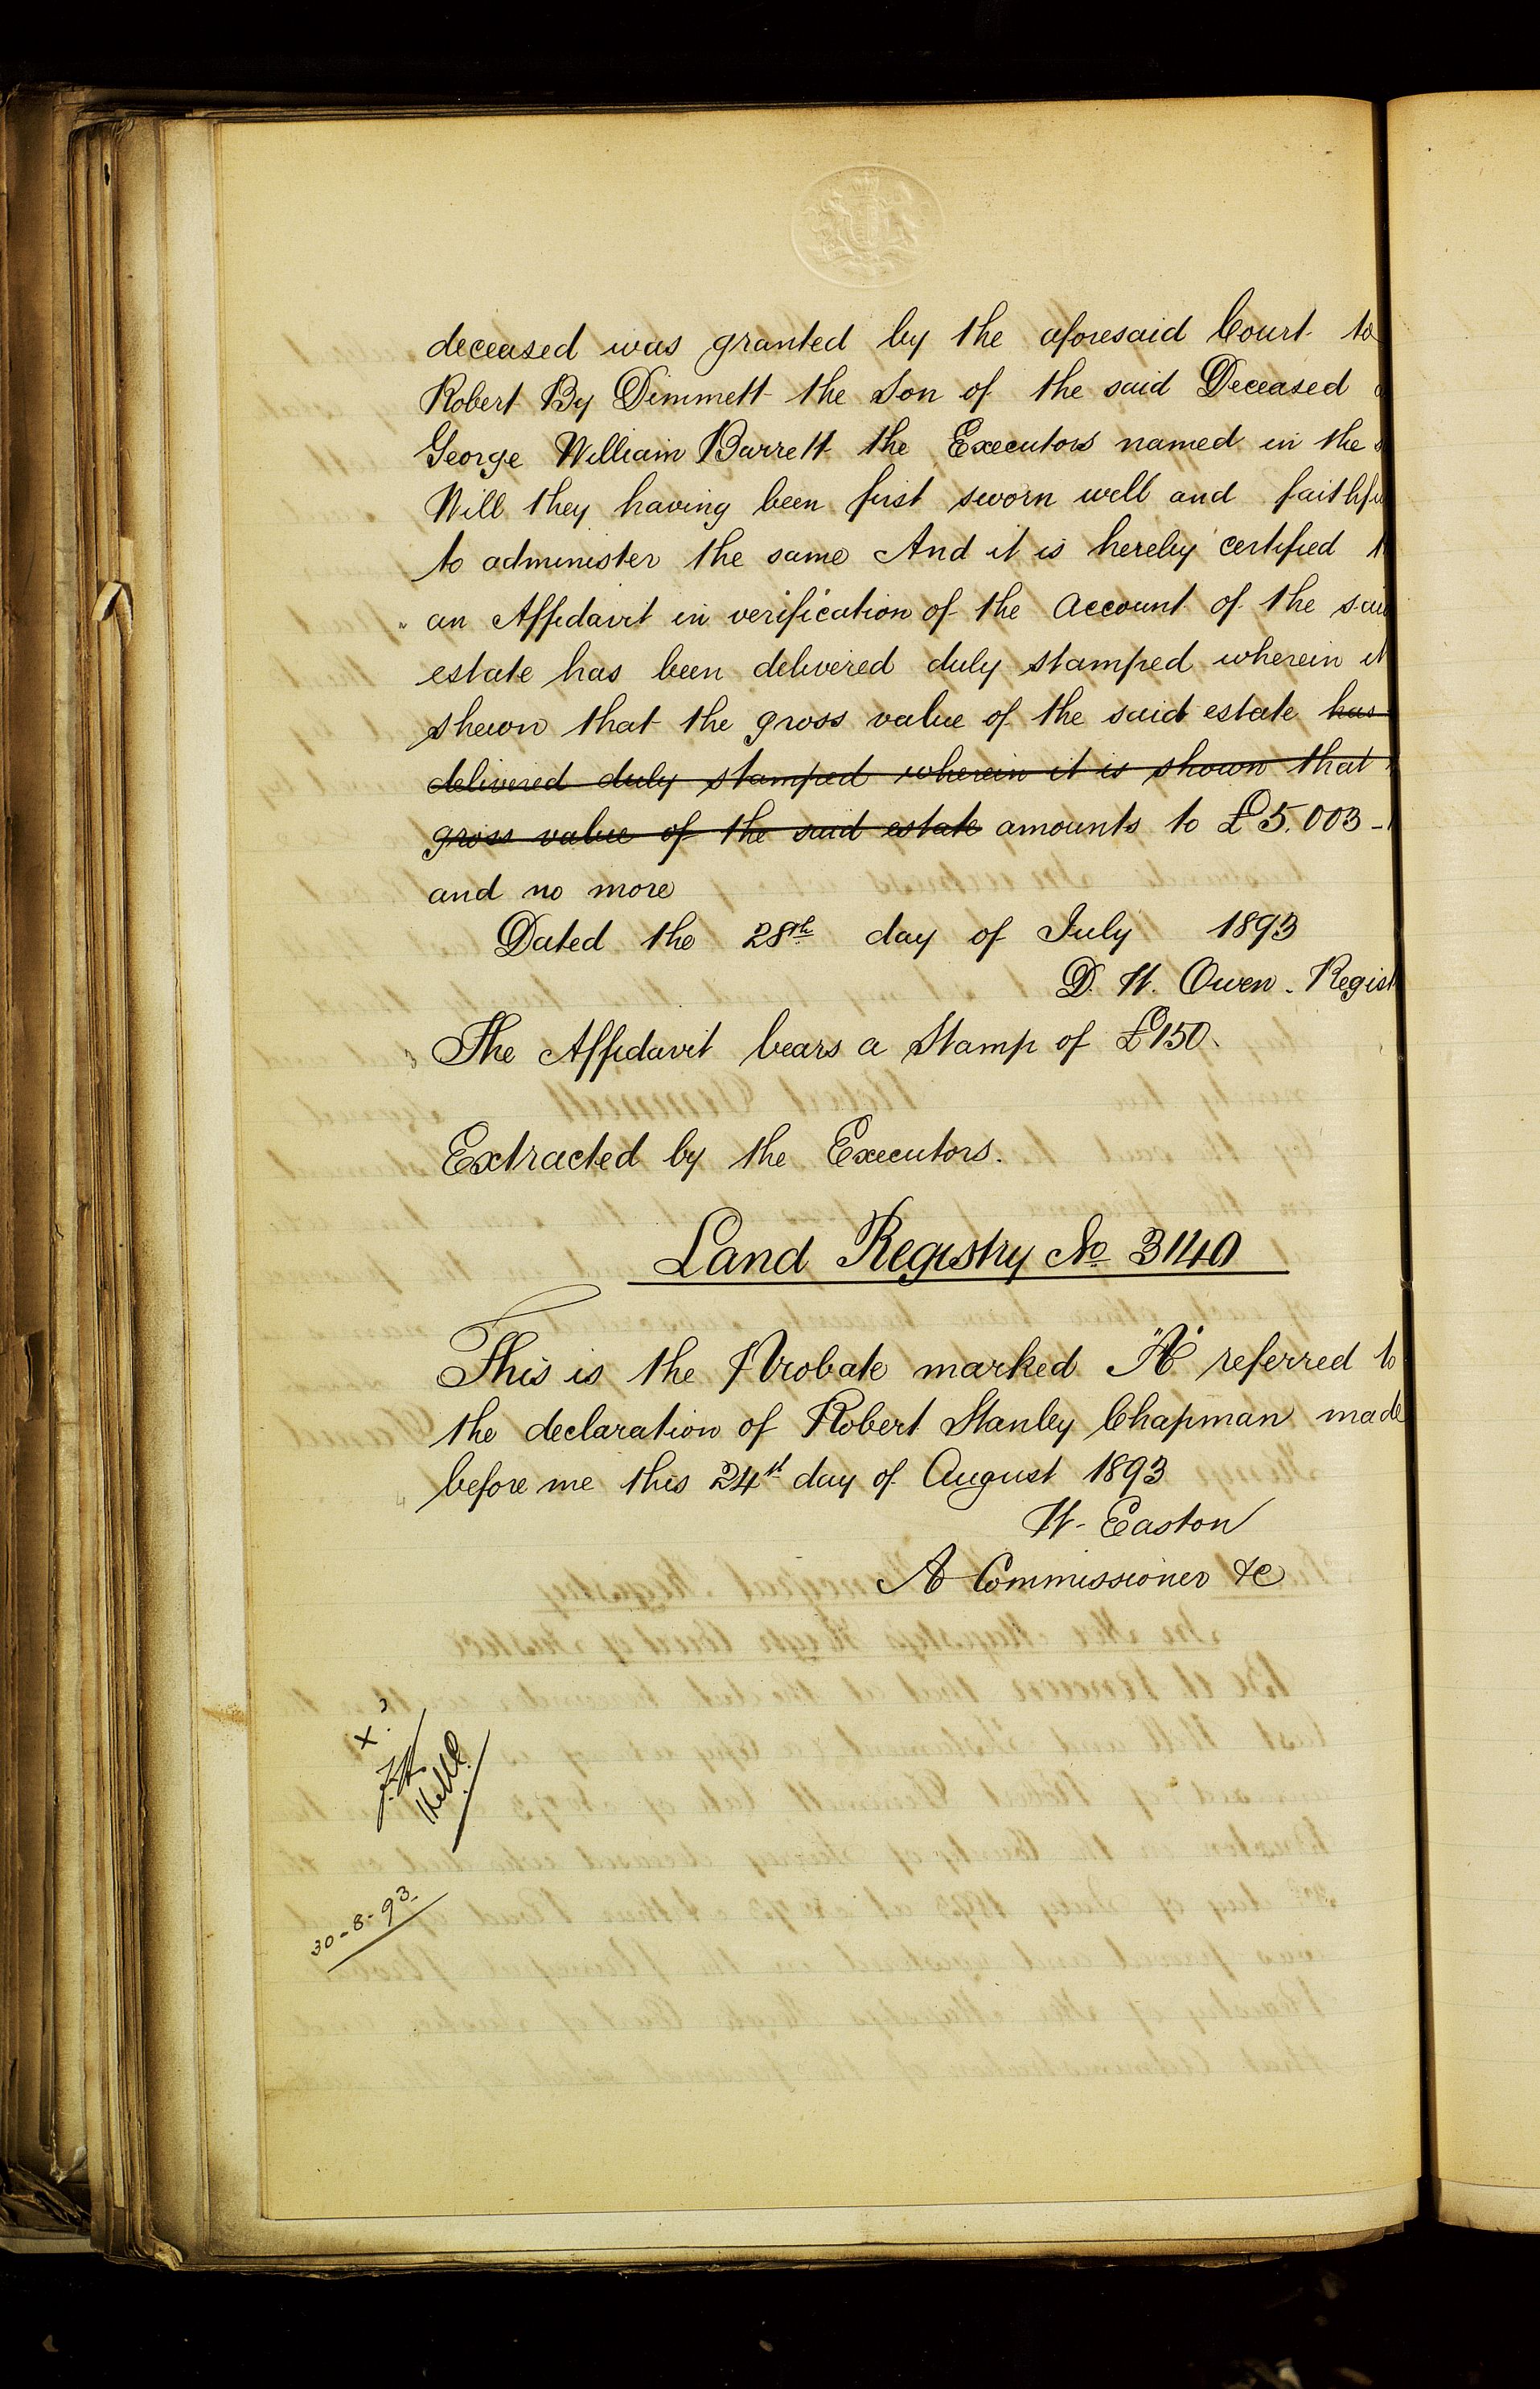 deceased was granted by the aforesaid Court to
Robert By Dimmett the Son of the said Deceased
George William Barrett the Executors named in the
Will they having been first sworn well and faithfu
to administer the same And it is hereby certified
an Affidavit in verification of the Account of the said
estate has been delivered duly stamped wherein it
shewn that the gross value of the said estate has
delivered duly stamped wherein it is shown that
gross value of the said estate amounts to £5.003-
and no more
Dated the 28th day of July 1893
D. H. Owen. Regist
The Affidavit bears a Stamp of £150.
Extracted by the Executors.
Land Registry No 3140
This is the Probate marked "A" referred to
the declaration of Robert Stanley Chapman made
before me this 24th day of August 1893
W. Easton
A Commissioner &c
30-8-93